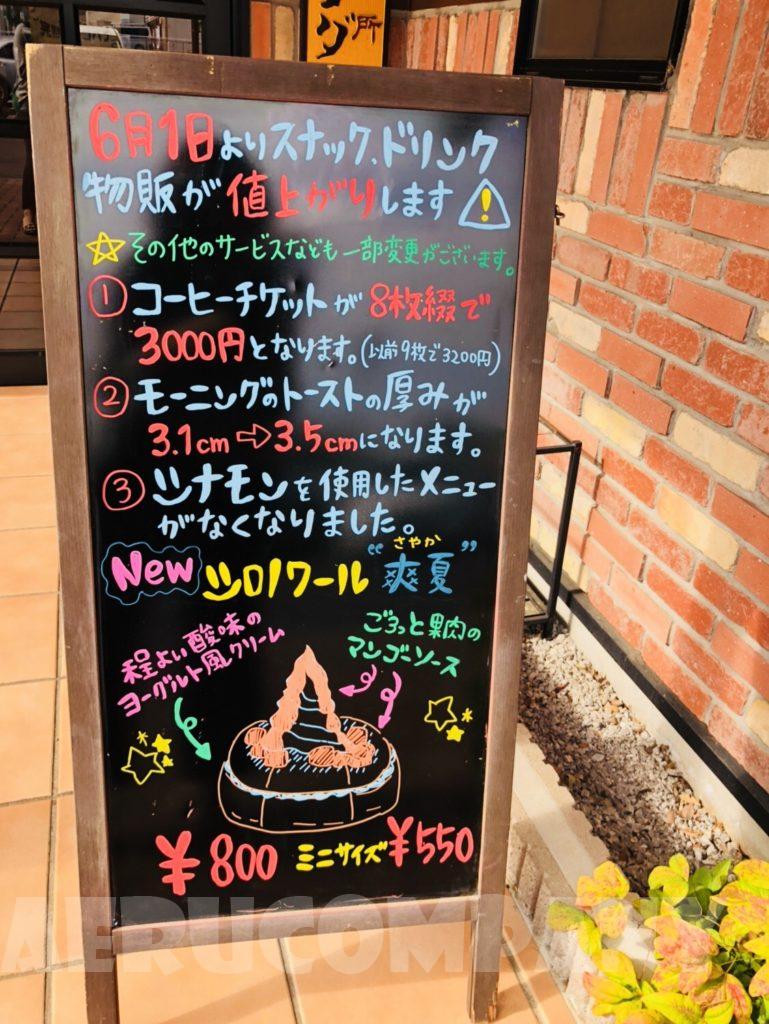 所
6月1日よりスナック、ドリンク
物販が値上がりします
☆その他のサービスなども一部変更がございます。
①コーヒーチケットが8枚綴で
3000円となります。(以前9枚で3200円)
②モーニングのトーストの厚みが
3.1cm⇨3.5cmになります。
③シナモンを使用したメニュー
がなくなりました。
New シロノワール “爽夏”
さやか
程よい酸味の
ヨーグルト風クリーム
ごろっと果肉の
マンゴーソース
¥800 ミニサイズ¥550
AERUCOMPA